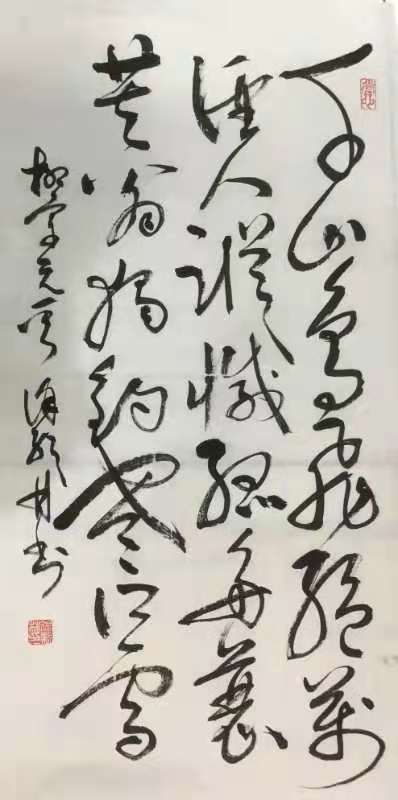 千山鳥飛絕萬
徑人蹤滅孤舟蓑
笠翁獨釣寒江雪
柳宗元 书